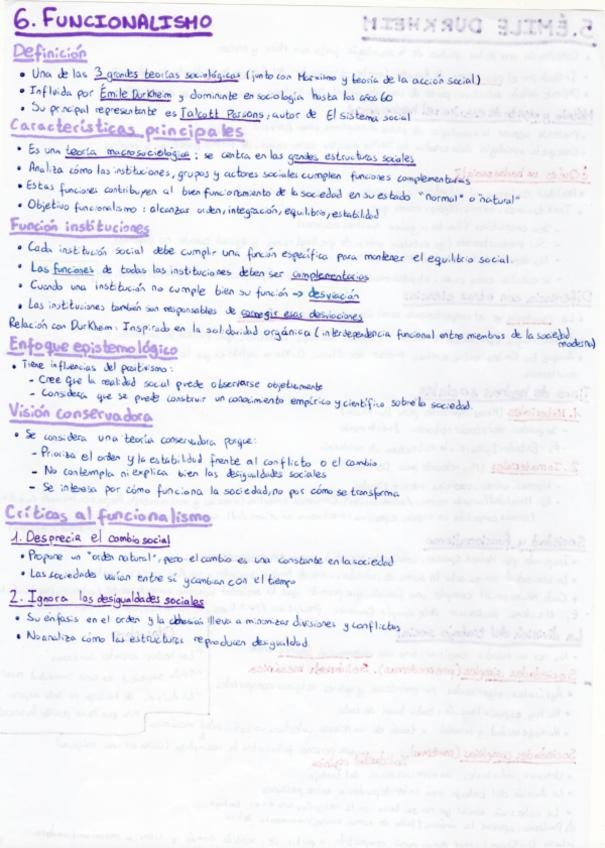 6. FUNCIONALISMO
Definición
• Una de las 3 grandes teorías sociológicas (junto con Marxismo y teoría de la acción social)
• Influida por Émile Durkheim y dominante en sociología hasta los años 60
• Su principal representante es Talcott Parsons, autor de El sistema social
Características principales
• Es una teoría macrosociológica: se centra en las grandes estructuras sociales
• Analiza cómo las instituciones, grupos y actores sociales cumplen funciones complementarias
• Estas funciones contribuyen al bien funcionamiento de la sociedad en su estado "normal" o "natural"
• Objetivo funcionalismo: alcanzar orden, integración, equilibrio, estabilidad
Función instituciones
• Cada institución social debe cumplir una función específica para mantener el equilibrio social.
• Las funciones de todas las instituciones deben ser complementarias
• Cuando una institución no cumple bien su función → desviación
• Las instituciones también son responsables de corregir esas desviaciones
Relación con Durkheim: Inspirado en la solidaridad orgánica (interdependencia funcional entre miembros de la sociedad moderna)
Enfoque epistemológico
• Tiene influencias del positivismo:
- Cree que la realidad social puede observarse objetivamente
- Considera que se puede construir un conocimiento empírico y científico sobre la sociedad.
Visión conservadora
• Se considera una teoría conservadora porque:
- Prioriza el orden y la estabilidad frente al conflicto o el cambio
- No contempla ni explica bien las desigualdades sociales
- Se interesa por cómo funciona la sociedad, no por cómo se transforma
Críticas al funcionalismo
1. Desprecia el cambio social
• Propone un "orden natural", pero el cambio es una constante en la sociedad
• Las sociedades varían entre sí y cambian con el tiempo
2. Ignora las desigualdades sociales
• Su énfasis en el orden y la cohesión lleva a minimizar divisiones y conflictos
• No analiza cómo las estructuras reproducen desigualdad